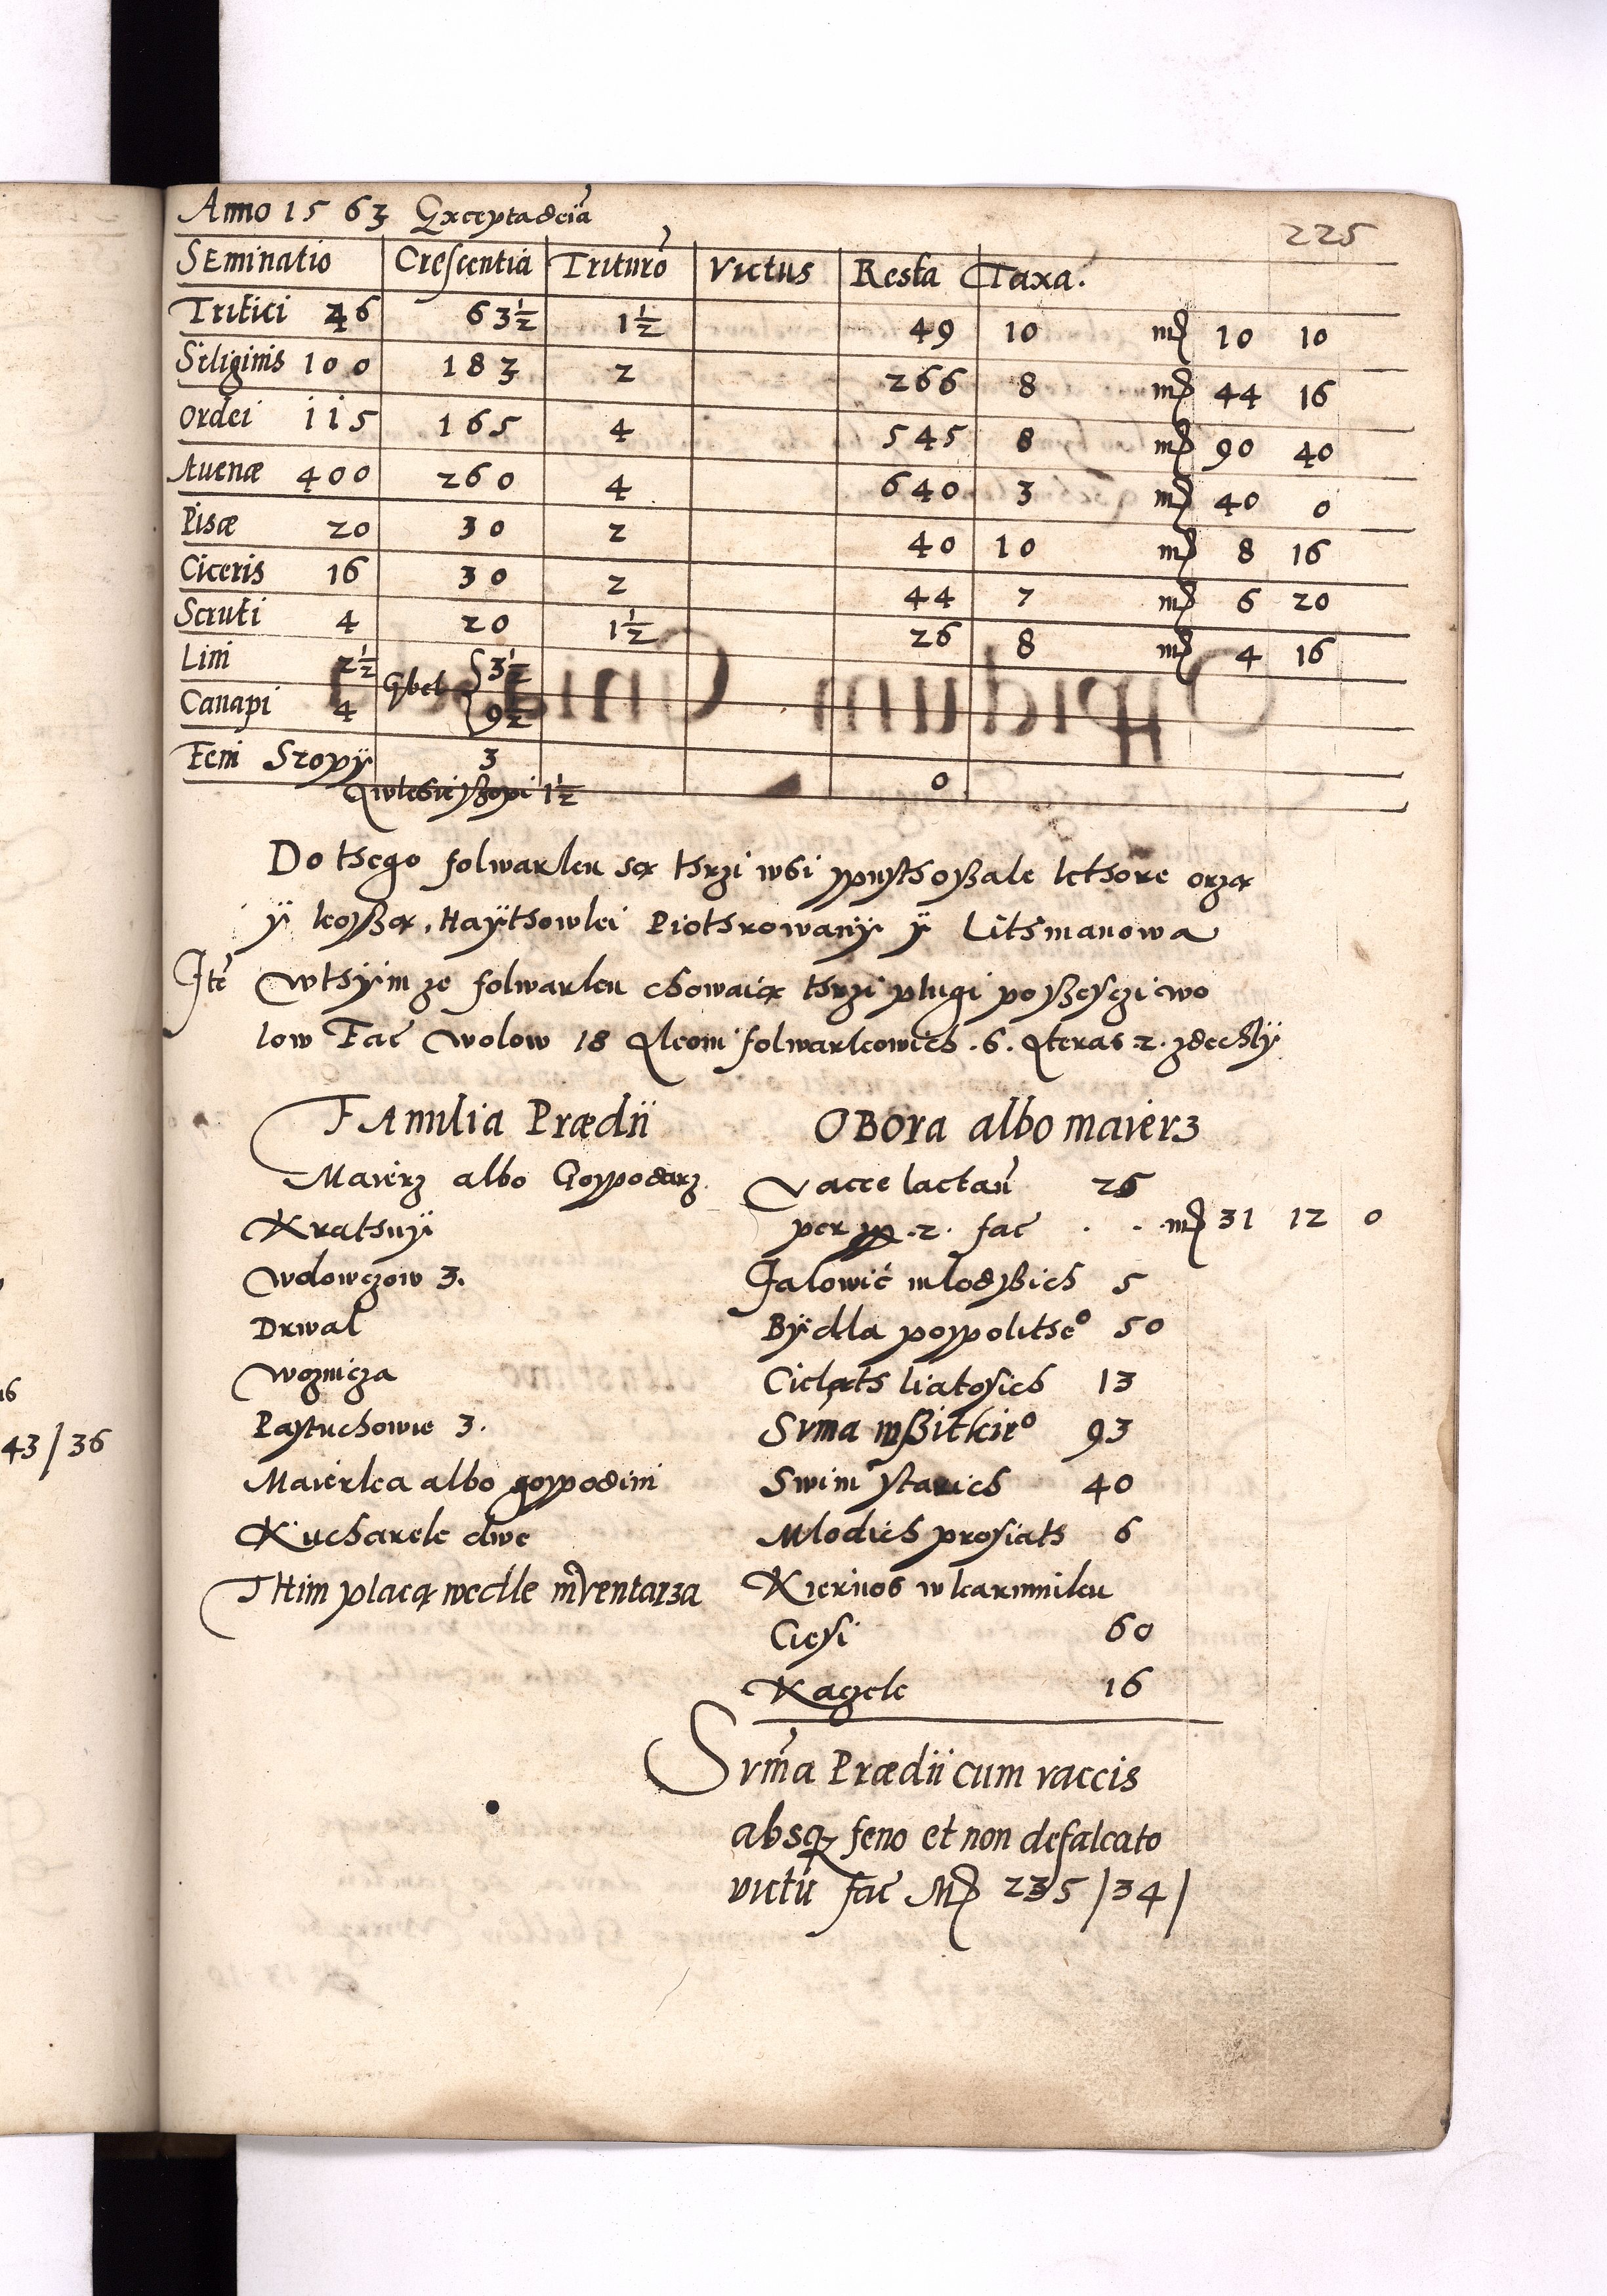 Anno 1563 Excepta decia
225
Seminatio Crescentia Trituro Victus Resta Taxa.
Tritici 46 63½ 1½ 49 10 m 10 10
Siliginis 100 183 2 266 8 m 44 16
Ordei 115 165 4 545 8 m 90 40
Auenæ 400 260 4 640 3 m 40 0
Pisæ 20 30 2 40 10 m 8 16
Ciceris 16 30 2 44 7 m 6 20
Scruti 4 20 1½ 26 8 m 4 16
Lini 2½ Gbel 3½
Canapi 4 9½
Feni Szopy 3 0
1½
Do thego folwarku są thrzi wsi kthore orzą
y koszą, Haythowki Piothrowani y Lithmanowa
Ite Wthyim ze folwarku chowaią thrzi plugi po szesczi wo
low Fac Wolow 18 Koni folwarkowich .6. teras 2. zdechly
Familia Prædii
Maierz albo Gospodarz
Kratsny
Wolowczow 3.
Drwal
Woznicza
Pastuchowie 3.
Maierka albo gospodini
Kucharek dwe
Thim placą wedle inventarza
Obora albo maierz
Vacce lactan 25
per .2. fac . . m 31 12 0
Jalowic mlodssich 5
Bydla pospolitheo 50
Cieląth liatosich 13
Suma wssitkieo 93
Swini starich 40
Mlodich prosiath 6
Kiernos w karmniku
Giesi 60
Kaczk 16
Suma Prædii cum vaccis
absq feno et non defalcato
victu fac M 235/34/
43/36